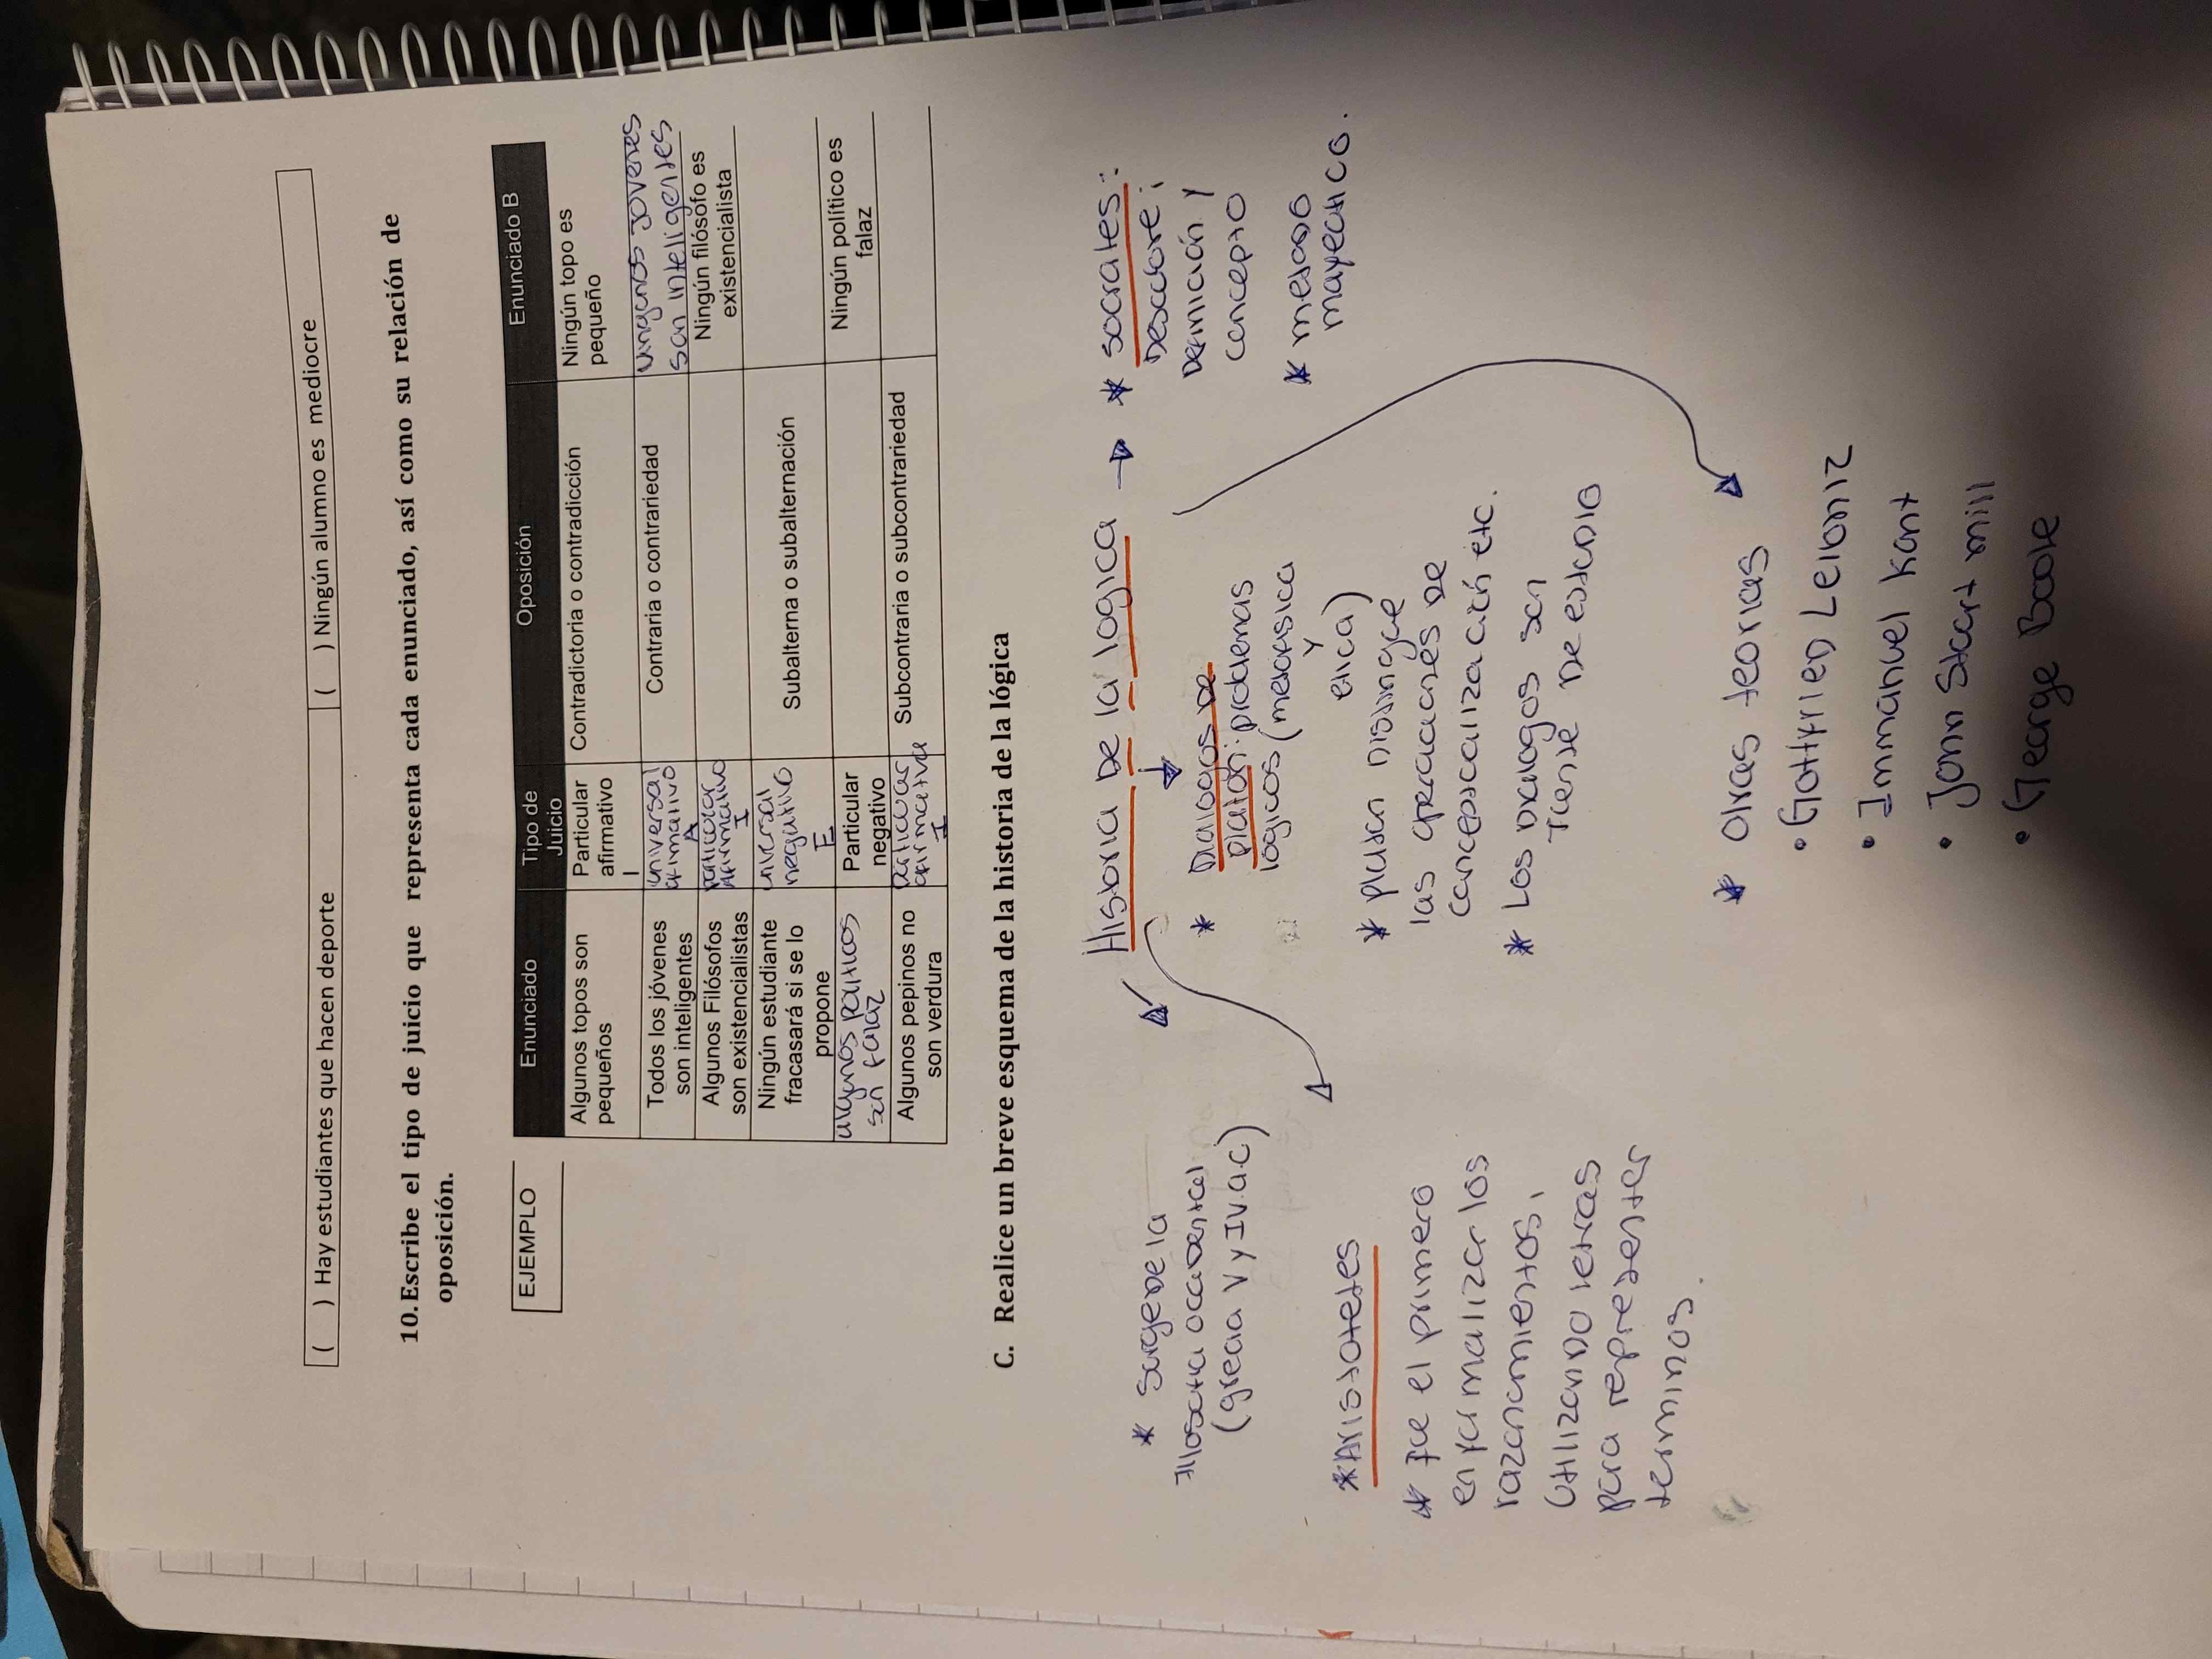 ( ) Hay estudiantes que hacen deporte ( ) Ningún alumno es mediocre
10.Escribe el tipo de juicio que representa cada enunciado, así como su relación de
oposición.
EJEMPLO
Enunciado Tipo de Juicio Oposición Enunciado B
Algunos topos son pequeños Particular afirmativo I Contradictoria o contradicción Ningún topo es pequeño
Todos los jóvenes son inteligentes universal afirmativo A Contraria o contrariedad Ningunos jovenes son inteligentes
Algunos Filósofos son existencialistas particular afirmativo I Ningún filósofo es existencialista
Ningún estudiante fracasará si se lo propone universal negativo E Subalterna o subalternación
algunos politicos son falaz Particular negativo Ningún político es falaz
Algunos pepinos no son verdura particular afirmativa I Subcontraria o subcontrariedad
C. Realice un breve esquema de la historia de la lógica
Historia De la logica
* surge De la
Filosofia occidental
(grecia V y IV.a.c)
*Aristoteles
* Fue el primero
en formalizar los
razonamientos,
utilizando letras
para representar
terminos.
* Dialogos De
platon: problemas
logicos (metafisica
y
etica)
* platon distingue
las operaciones De
conceptualización etc.
* Los Dialogos son
Fuente De estudio
* socrates:
Descubre:
Definición y
concepto
* metodo
mayeutico.
* Otras teorias
• Gottfried Leibniz
• Immanuel Kant
• John Stuart mill
• George Boole